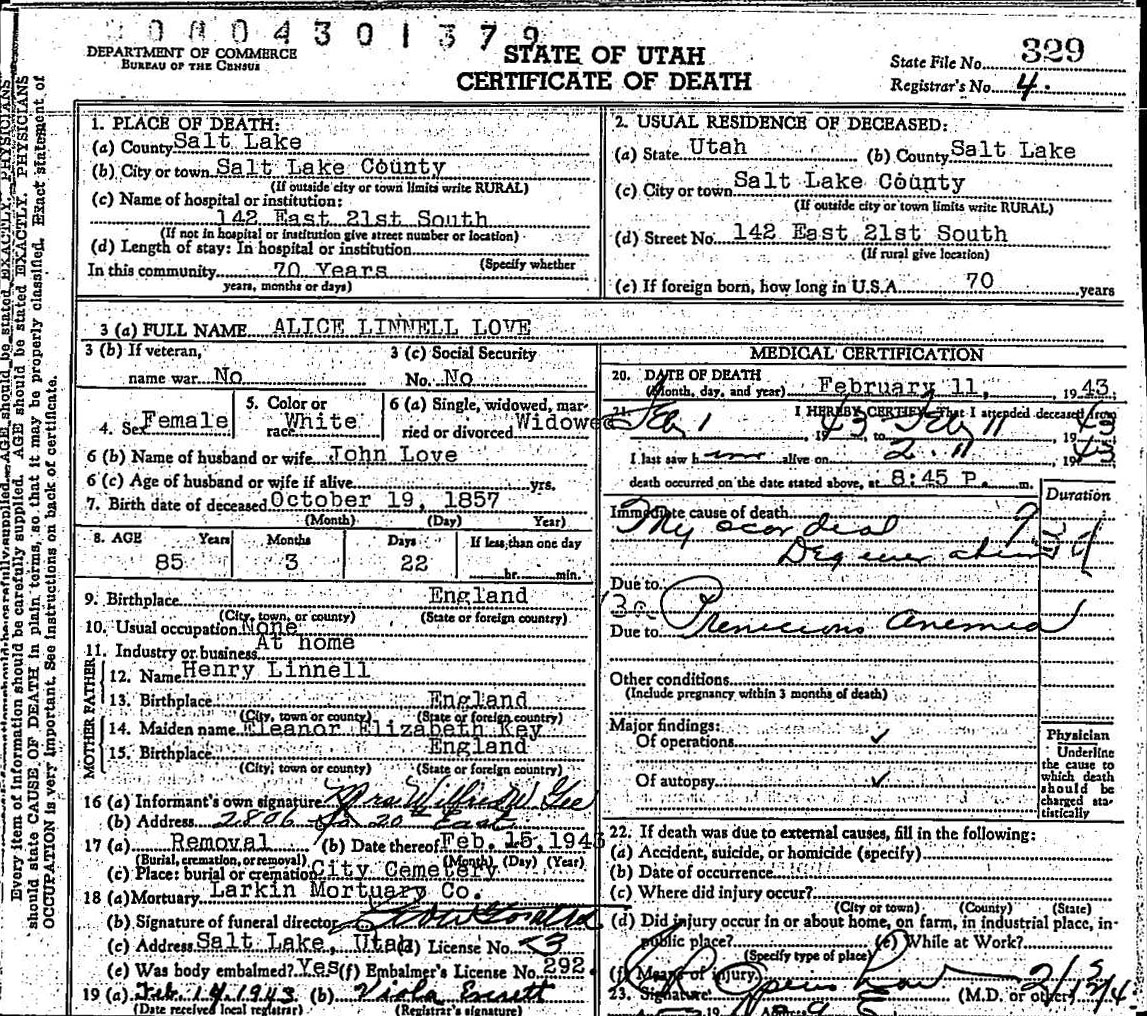 0004301379
DEPARTMENT OF COMMERCE
BUREAU OF THE CENSUS
STATE OF UTAH
CERTIFICATE OF DEATH
State File No. 329
Registrar's No. 4.
Every item of information should be carefully supplied. AGE should be stated EXACTLY. PHYSICIANS
should state CAUSE OF DEATH in plain terms, so that it may be properly classified. Exact statement of
OCCUPATION is very important. See instructions on back of certificate.
1. PLACE OF DEATH:
(a) County Salt Lake
(b) City or town Salt Lake County
(If outside city or town limits write RURAL)
(c) Name of hospital or institution:
142 East 21st South
(If not in hospital or institution give street number or location)
(d) Length of stay: In hospital or institution
(Specify whether
In this community 70 Years
years, months or days)
2. USUAL RESIDENCE OF DECEASED:
(a) State Utah (b) County Salt Lake
(c) City or town Salt Lake County
(If outside city or town limits write RURAL)
(d) Street No. 142 East 21st South
(If rural give location)
(e) If foreign born, how long in U.S.A. 70 years
3 (a) FULL NAME ALICE LINNELL LOVE
3 (b) If veteran, 3 (c) Social Security
name war No No. No
4. Sex Female 5. Color or race White 6 (a) Single, widowed, married or divorced Widowed
6 (b) Name of husband or wife John Love
6 (c) Age of husband or wife if alive yrs.
7. Birth date of deceased October 19, 1857
(Month) (Day) Year)
8. AGE Years Months Days If less than one day
85 3 22 hr. min.
9. Birthplace England
(City, town, or county) (State or foreign country)
10. Usual occupation None
11. Industry or business At home
FATHER
12. Name Henry Linnell
13. Birthplace England
(City, town or county) (State or foreign country)
MOTHER
14. Maiden name Eleanor Elizabeth Key
15. Birthplace England
(City, town or county) (State or foreign country)
16 (a) Informant's own signature Mrs Wilfred W. Gee
(b) Address 2806 So 20th East
17 (a) Removal (b) Date thereof Feb. 15, 1943
(Burial, cremation, or removal) (Month) (Day) (Year)
(c) Place: burial or cremation City Cemetery
18 (a) Mortuary Larkin Mortuary Co.
(b) Signature of funeral director
(c) Address Salt Lake, Utah (d) License No. 3
(e) Was body embalmed? Yes (f) Embalmer's License No. 292.
19 (a) Feb. 14, 1943 (b) Viola Errett
(Date received local registrar) (Registrar's signature)
MEDICAL CERTIFICATION
20. DATE OF DEATH
(Month, day, and year) February 11, 1943.
21. I HEREBY CERTIFY, That I attended deceased from
Feb 1, 1943, to Feb 11, 1943
I last saw h alive on 2.11, 1943
death occurred on the date stated above, at 8:45 P. m.
Duration
Immediate cause of death
Myocardial
Degeneration
Due to
Due to Pernicious Anemia
Other conditions
(Include pregnancy within 3 months of death)
Major findings:
Of operations ✓
Of autopsy ✓
Physician
Underline
the cause to
which death
should be
charged sta-
tistically
22. If death was due to external causes, fill in the following:
(a) Accident, suicide, or homicide (specify)
(b) Date of occurrence
(c) Where did injury occur?
(City or town) (County) (State)
(d) Did injury occur in or about home, on farm, in industrial place, in
public place? (e) While at Work?
(Specify type of place)
(f) Means of injury
23. Signature (M.D. or other)